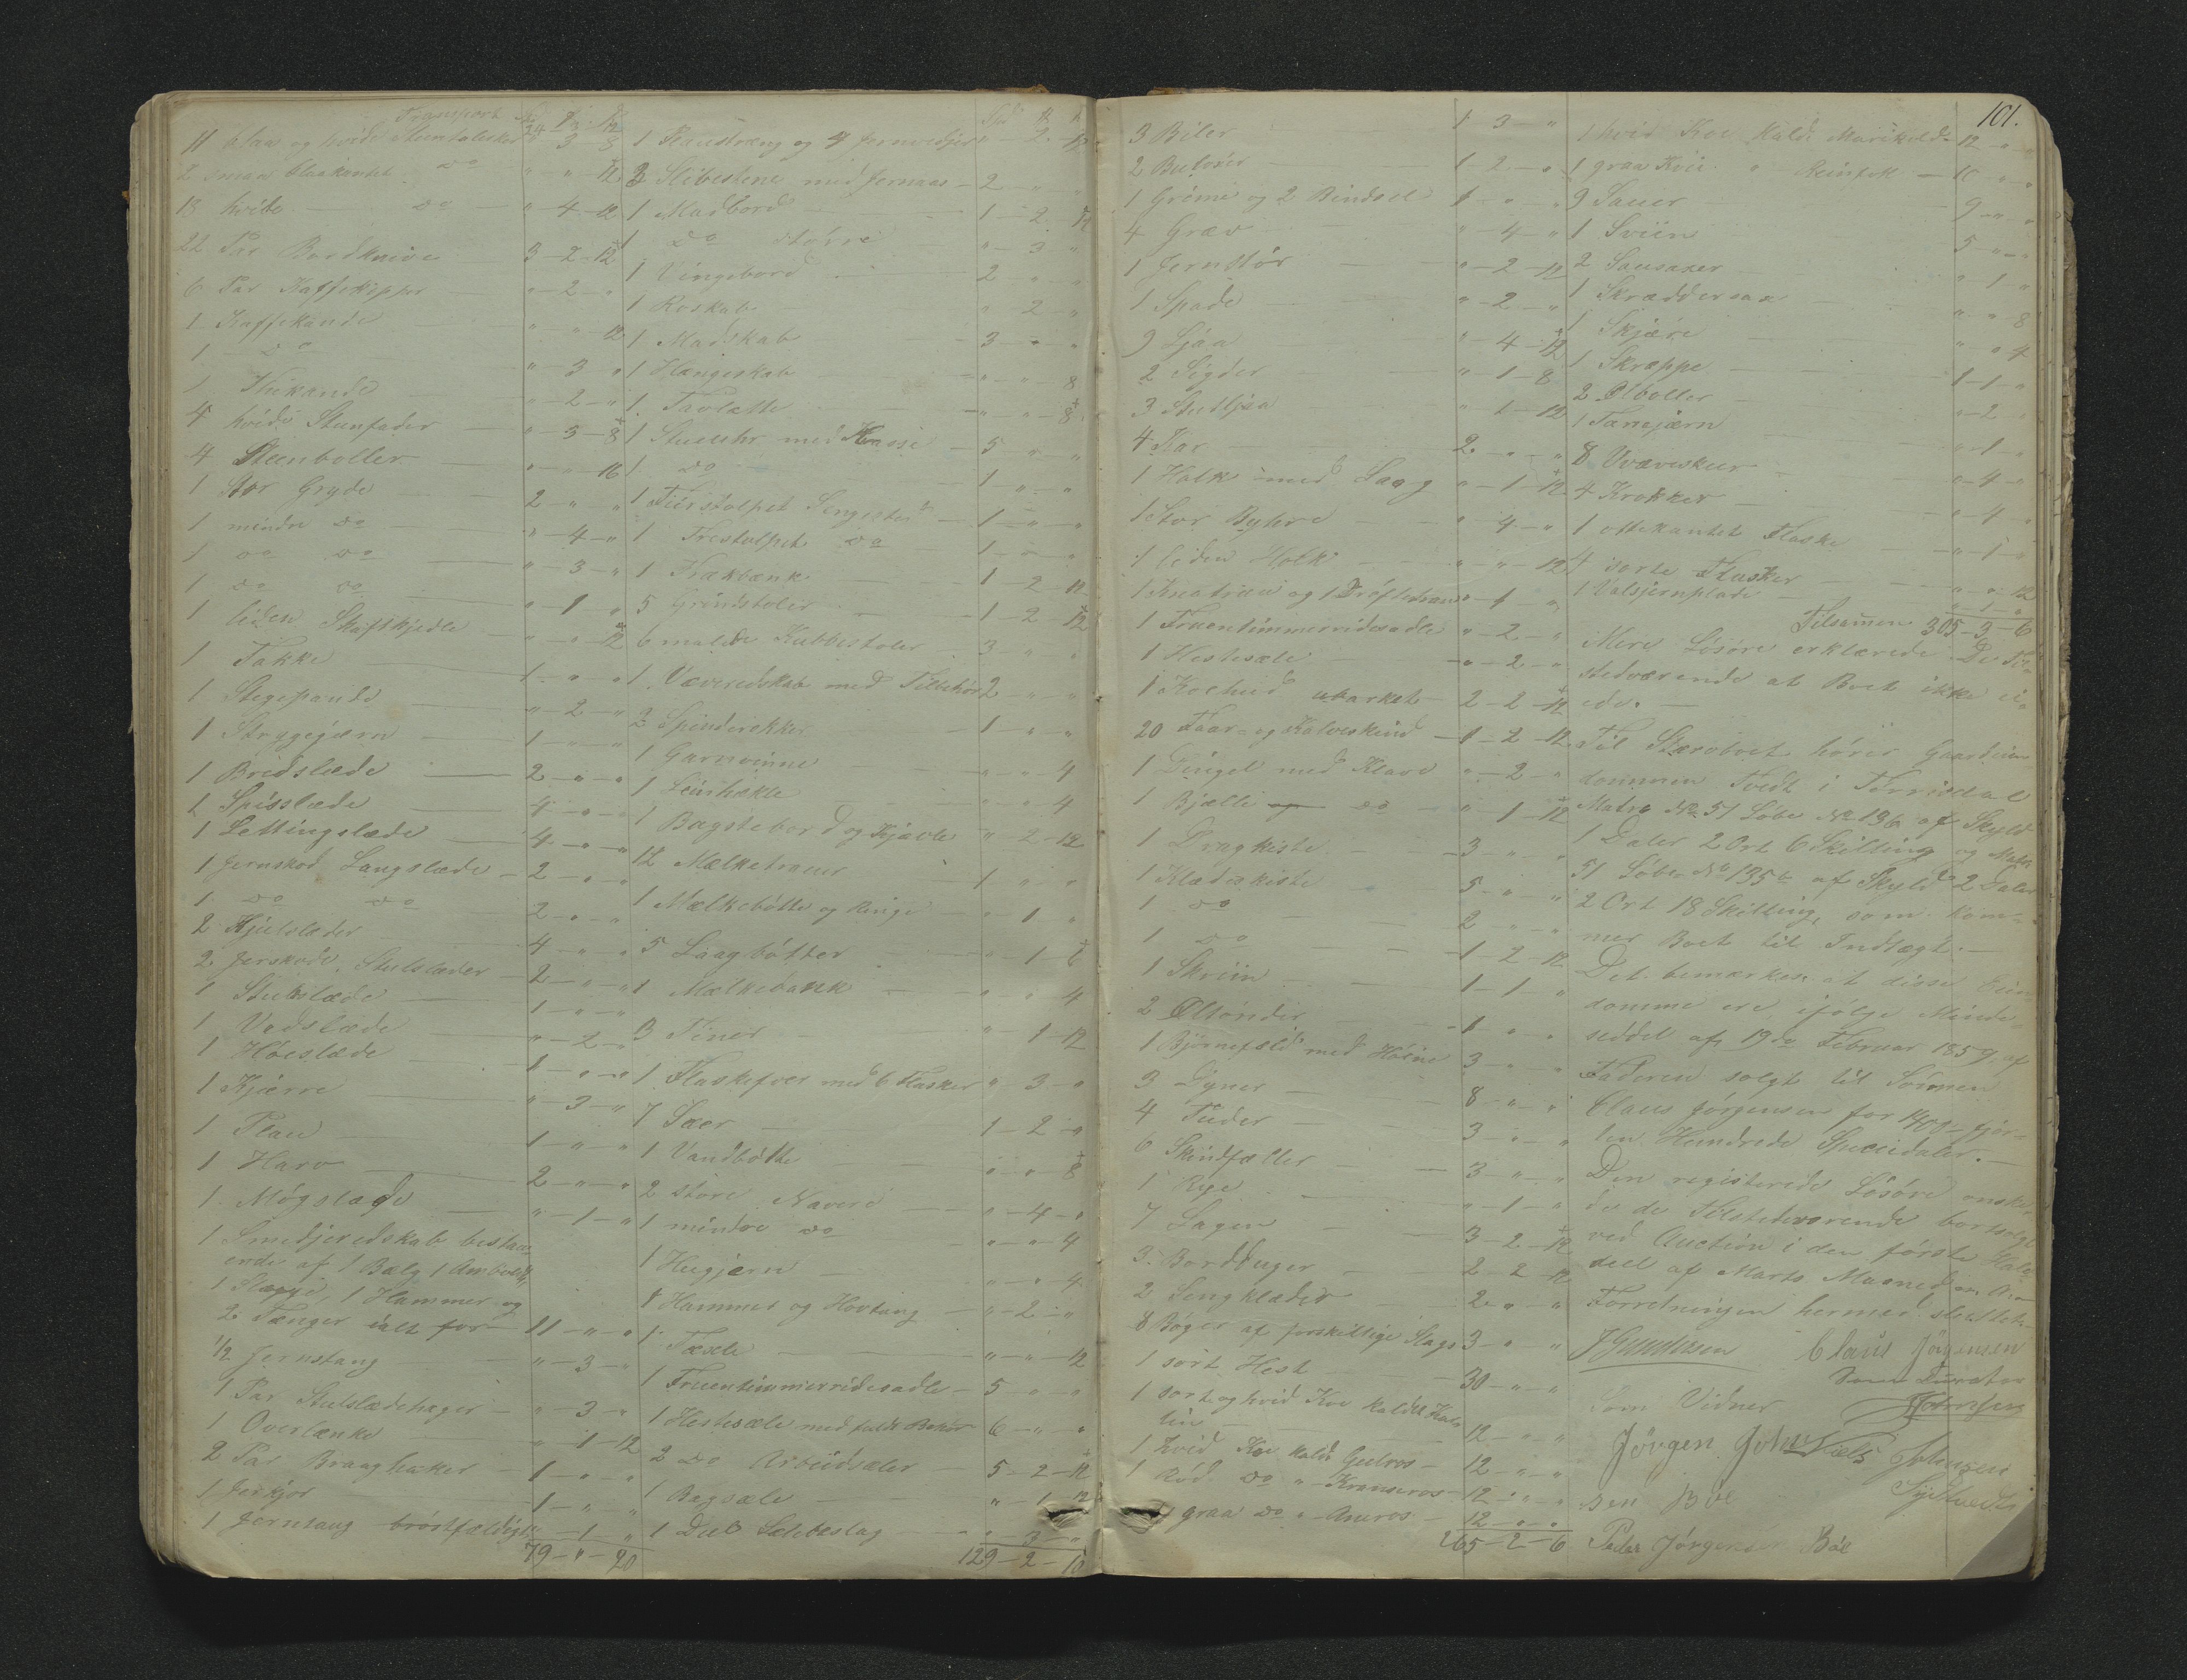 Transport
11 blaa og hvide Steentalerker " 3 - 8
2 smaa blaakantet do " - " - 12
13 hvide do " - 4 - 12
22 Par Bordknive 3 - 2 - 12
6 Par Kaffekopper " - 2 - "
1 Kaffekande " - " - 12
1 do " - 3 "
1 Thekande " - 2 - "
4 hvide Steenfader " - 3 - 8
4 Steenboller " - " - 16
1 Stor Gryde 2 - " - "
1 mindre do " - 4 - "
1 do do " - 3 - "
1 do do " - 1 - "
1 liden Skaftkjedle " - " - 12
1 Takke 1 - " - "
1 Stegepande " - 2 - "
1 Strygejærn 1 - " - "
1 Bredslæde 2 - " - "
1 Spisslæde 4 - " - "
1 Lettingslæde 4 - " - "
1 Jernskod Langslæde 2 - " - "
1 do do 2 - " - "
2 Hjulslæder 4 - " - "
2 Jerskode Stutslæder 2 - " - "
1 Stutslæde 1 - " - "
1 Vedslæde " - 2 - "
1 Høeslæde 1 - " - "
1 Kjærre " - 3 - "
1 Plau 1 - " - "
1 Harv 2 - " - "
1 Møgslæde " - 1 - "
1 Smedjeredskab bestaa-
ende af 1 Bælg 1 Ambolt,
1 Slægge, 1 Hammer og
2 Tænger ialt for 11 - " - "
1/2 Jernstang " - 3 - "
1 Par Stutslædehager " - 3 - "
1 Overlænke " - 1 - 12
2 Par Braaghaker 1 - " - "
1 Jerkjør 1 - " - "
1 Jerntaug brøstfældigt " - 1 - "
79 - " - 20
Spd
1 Taustræng og 4 Jernvedjer " - 2 - 12
3 Slibestene med Jernaas 2 - " - "
1 Madbord 1 - 2 - 12
1 do større " - 3 "
1 Vingebord 2 - " - "
1 Roskab " 2 - "
1 Madskab 3 - " - "
1 Hængeskab " - " - 8
1 Tavlette " - " - 8
1 Stueuhr med Kasse 5 - " - "
1 do 1 - " - "
1 Fiirstolpet Sengested 1 - " - "
1 Trestolpet do 1 - " - "
1 Trækbænk 1 - 2 - 12
5 Grindstoler 1 - 2 - 12
6 malede Kubbestoler 3 - " - "
1 Væveredskab med Tilbehør 2 - " - "
2 Spinderokker 1 - " - "
1 Garnvinne " - " - 4
1 Liinhekle " - " - 4
1 Bagstebord og Kjævle " - 2 - 12
12 Mælketrauer 1 " - "
1 Mælkebøtte og Ringe " 1 "
5 Laagbøtter " - 1 - 6
1 Mælkebænk " " 4
3 Tiner " - 1 - 12
1 Flaskefoer med 6 Flasker " - 3 - "
7 Sæer 1 - 2 - "
1 Vandbøtte " - " - 8
2 store Navere " - 4 - "
1 mindre do " - " - 4
1 Hugjærn " - " - 4
1 Hammer og Hovtang " - 2 - "
1 Tæxle " - " - 12
1 Fruentimmerridesadle 5 - " - "
1 Hestesæle med fuldt Behør 6 - " - "
2 do Arbeidsæler 5 - 2 - 12
1 Bagsæle " - 1 - 12
1 Deel Selebeslag " - 3 - "
129 - 2 - 10
101.
3 Biler 1 3 - "
2 Buløxer 1 - 2 - "
1 Grime og 2 Bindsel 1 - " - "
4 Græv " - 4 - "
1 Jernstør " - 2 - 12
1 Spade " - 2 - "
9 Ljaa " - 4 - 12
2 Sigder " - 1 - 8
3 Stutljaa " - 1 - 12
4 Kar 2 - " - "
1 Holk med Laag " - 1 - 12
1 Stor Byttere " - 4 - "
1 liden Holk " - " - 12
1 Knatrau og 1 Drøftetrau " - 1 - "
1 Fruentimmerridesadle " - 2 - "
1 Hestesæle " - 2 - "
1 Koehud ubarket 2 - 2 - 12
20 Faar- og Kalveskind 1 - 2 - 12
1 Dingel med Klave " - 2 - "
1 Bjælle do " - 1 - 12
1 Dragkiste 3 - " - "
1 Klædeskiste 5 - " - "
1 do 2 - " - "
1 do 1 - 2 - 12
1 Skriin 1 - 1 - "
2 Øltønder 1 - " - "
1 Bjørnefeld med Høine 3 - " - "
3 Dyner 8 - " - "
4 Puder 3 - " - "
6 Skindfæller 3 - " - "
1 Rye " - 1 - "
7 Lagen 3 - 2 - 12
3 Bordduger 2 - 2 - 12
2 Sengklæder 2 - " - "
8 Bøger af forskillige Slags 3 " - "
1 sort Hest 30 - " - "
1 sort og hvid Koe kaldet Kal-
lin 12 - " - "
1 hvid Koe kaldt Guلros 12 - " - "
1 Rød do " Kranseros 12 - " - "
graa do " Anros 12 - " - "
265 - 2 - 6
1 hvid Koe Kaldt 12 - " - "
1 graa Kvie " 10 - " - "
9 Sauer 9 - " - "
1 Sviin 5 - " - "
2 Sausaxer " 1 "
1 Skræddersax " " 8
1 Skjære " " 4
1 Skræppe 1 - 1 - "
2 Ølboller " - 2 -
1 Tanejærn " - 1 -
8 Vævskeer " - 4 -
4 Krokker " - 4 -
1 ottekantet Flaske " - 1 -
4 sorte Flasker " - " - 12
1 Valsjernplade " - 1 - "
Tilsamen 305 - 3 - 6
Mere Løsøre erklærede De Til-
stedværende at Boet ikke ei-
ede. —
Til Stervboet hører Gaardeien-
dommen Tvedt i Torrisdal
Matr No 51 Løbe No 136 af Skyld
1 Daler 2 Ort 6 Skilling og Matr
51 Løbe No 135b af Skyld 2 Daler
2 Ort 18 Skilling, som kom-
mer Boet til Indtægt. —
Det bemærkes at disse Eien-
domme ere ifølge Minde-
seddel af 19de Februar 1859 af
Faderen solgt til Sønnen
Claus Jørgensen for 1400 - fjor-
ten Hundrede Speciedaler. —
Den registerede Løsøre ønske-
de de Tilstedeværende bortsolgt
ved Auction i den første Halv-
deel af Marts Maaned
Forretningen hermed sluttet.
J Gundersen Claus Jørgensen
Som Curator
Som Vidner
Jørgen Johnsen Niels Johnsen
sen Bøe
Peder Jørgensen Bøe